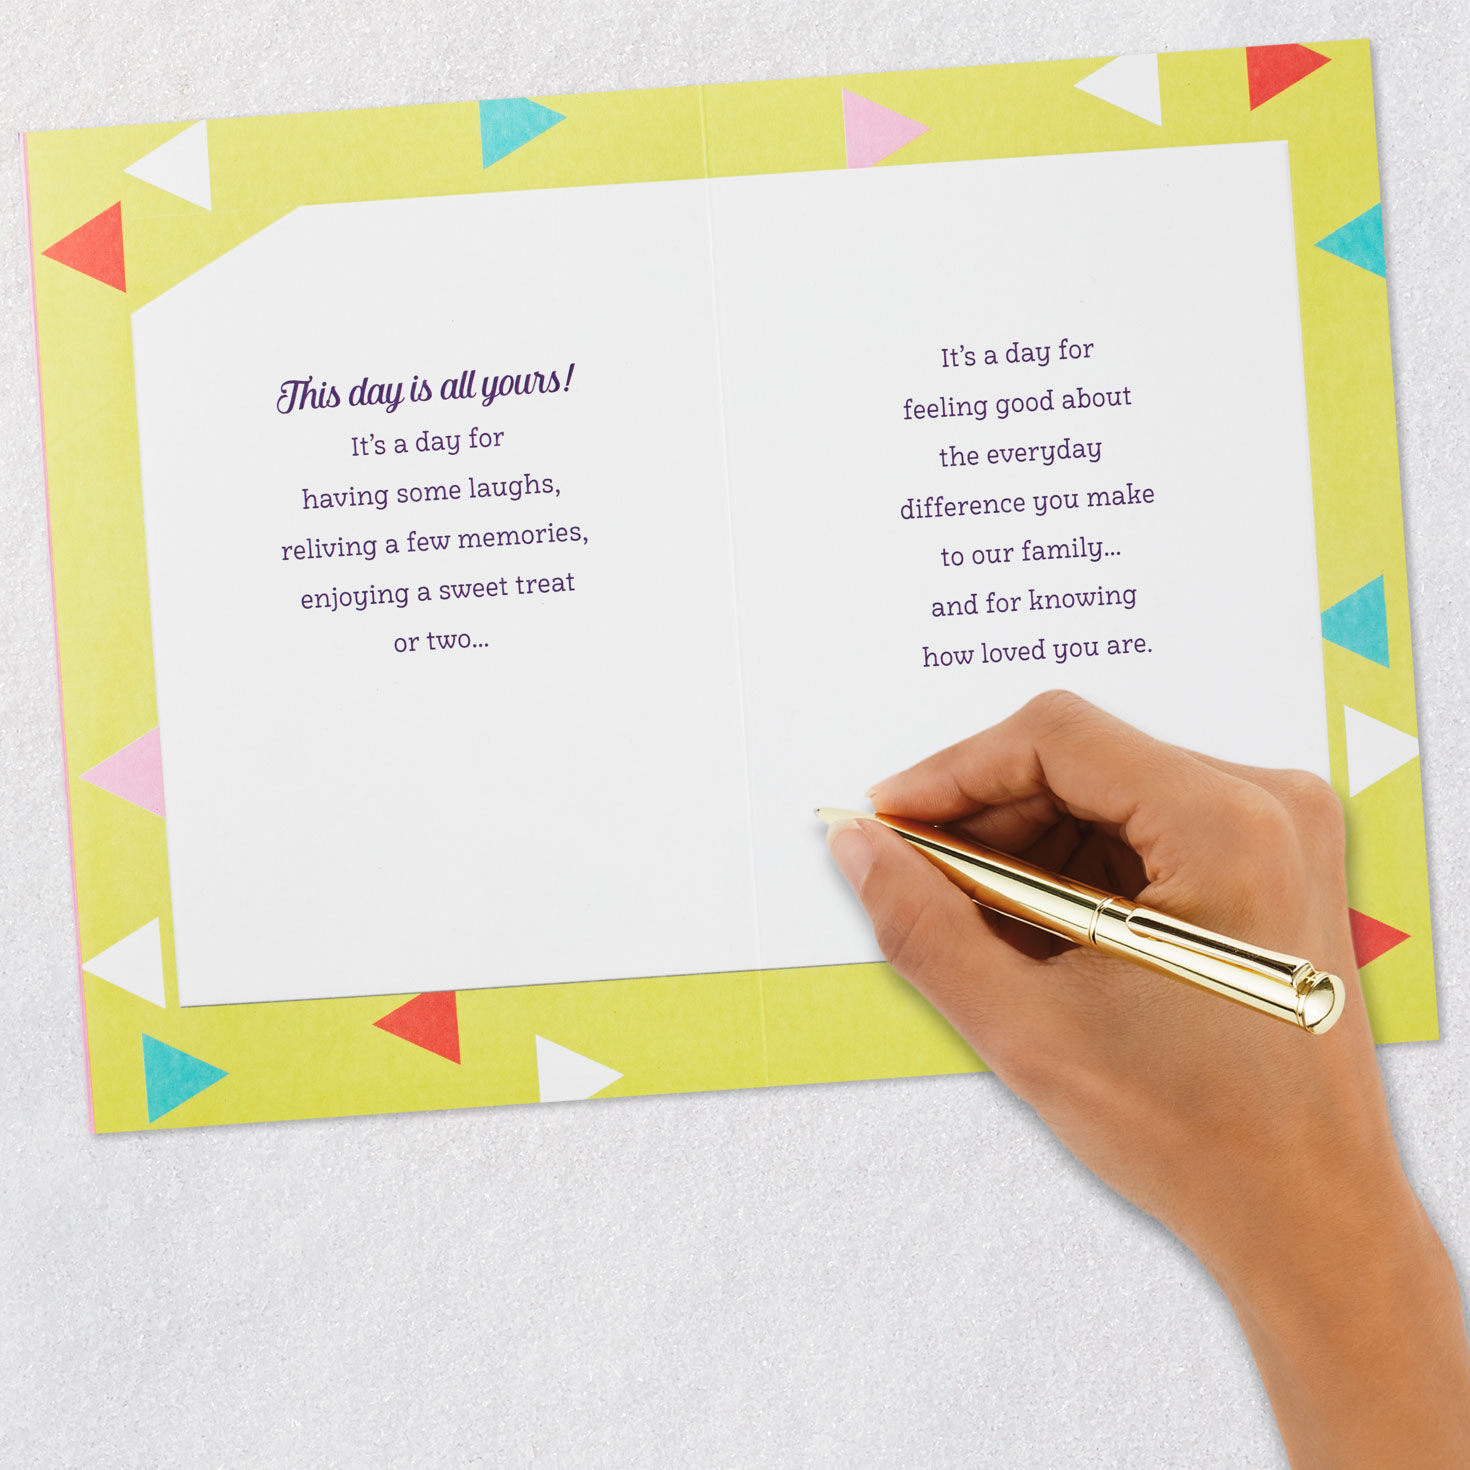 This day is all yours!
It's a day for
having some laughs,
reliving a few memories,
enjoying a sweet treat
or two...
It's a day for
feeling good about
the everyday
difference you make
to our family...
and for knowing
how loved you are.